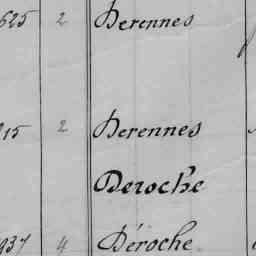 625 2 Derennes
215 2 Derennes
Deroche
937 4 Déroche